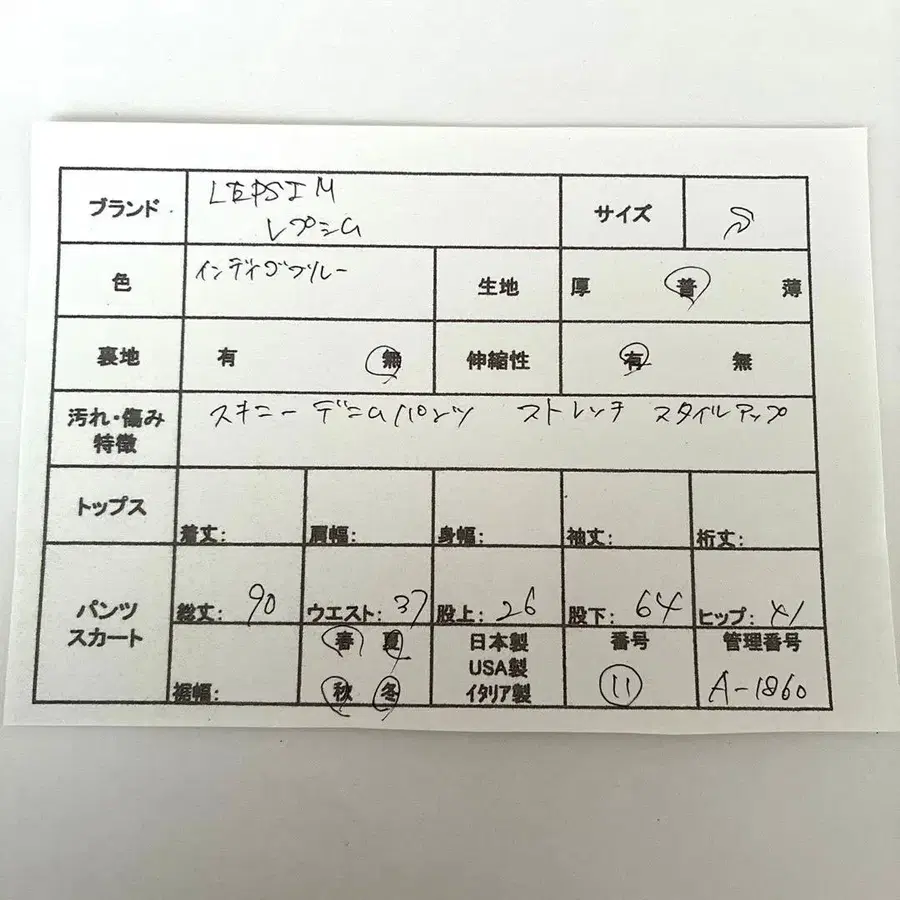 ブランド LEPSIM サイズ S
レプシム
色 インディゴブルー 生地 厚 普 薄
裏地 有 無 伸縮性 有 無
汚れ・傷み スキニーデニムパンツ ストレッチ スタイルアップ
特徴
トップス 着丈: 肩幅: 身幅: 袖丈: 裄丈:
パンツ 総丈: 90 ウエスト: 37 股上: 26 股下: 64 ヒップ: 41
スカート 春 夏 日本製 番号 管理番号
USA製
裾幅: 秋 冬 イタリア製 11 A-1860